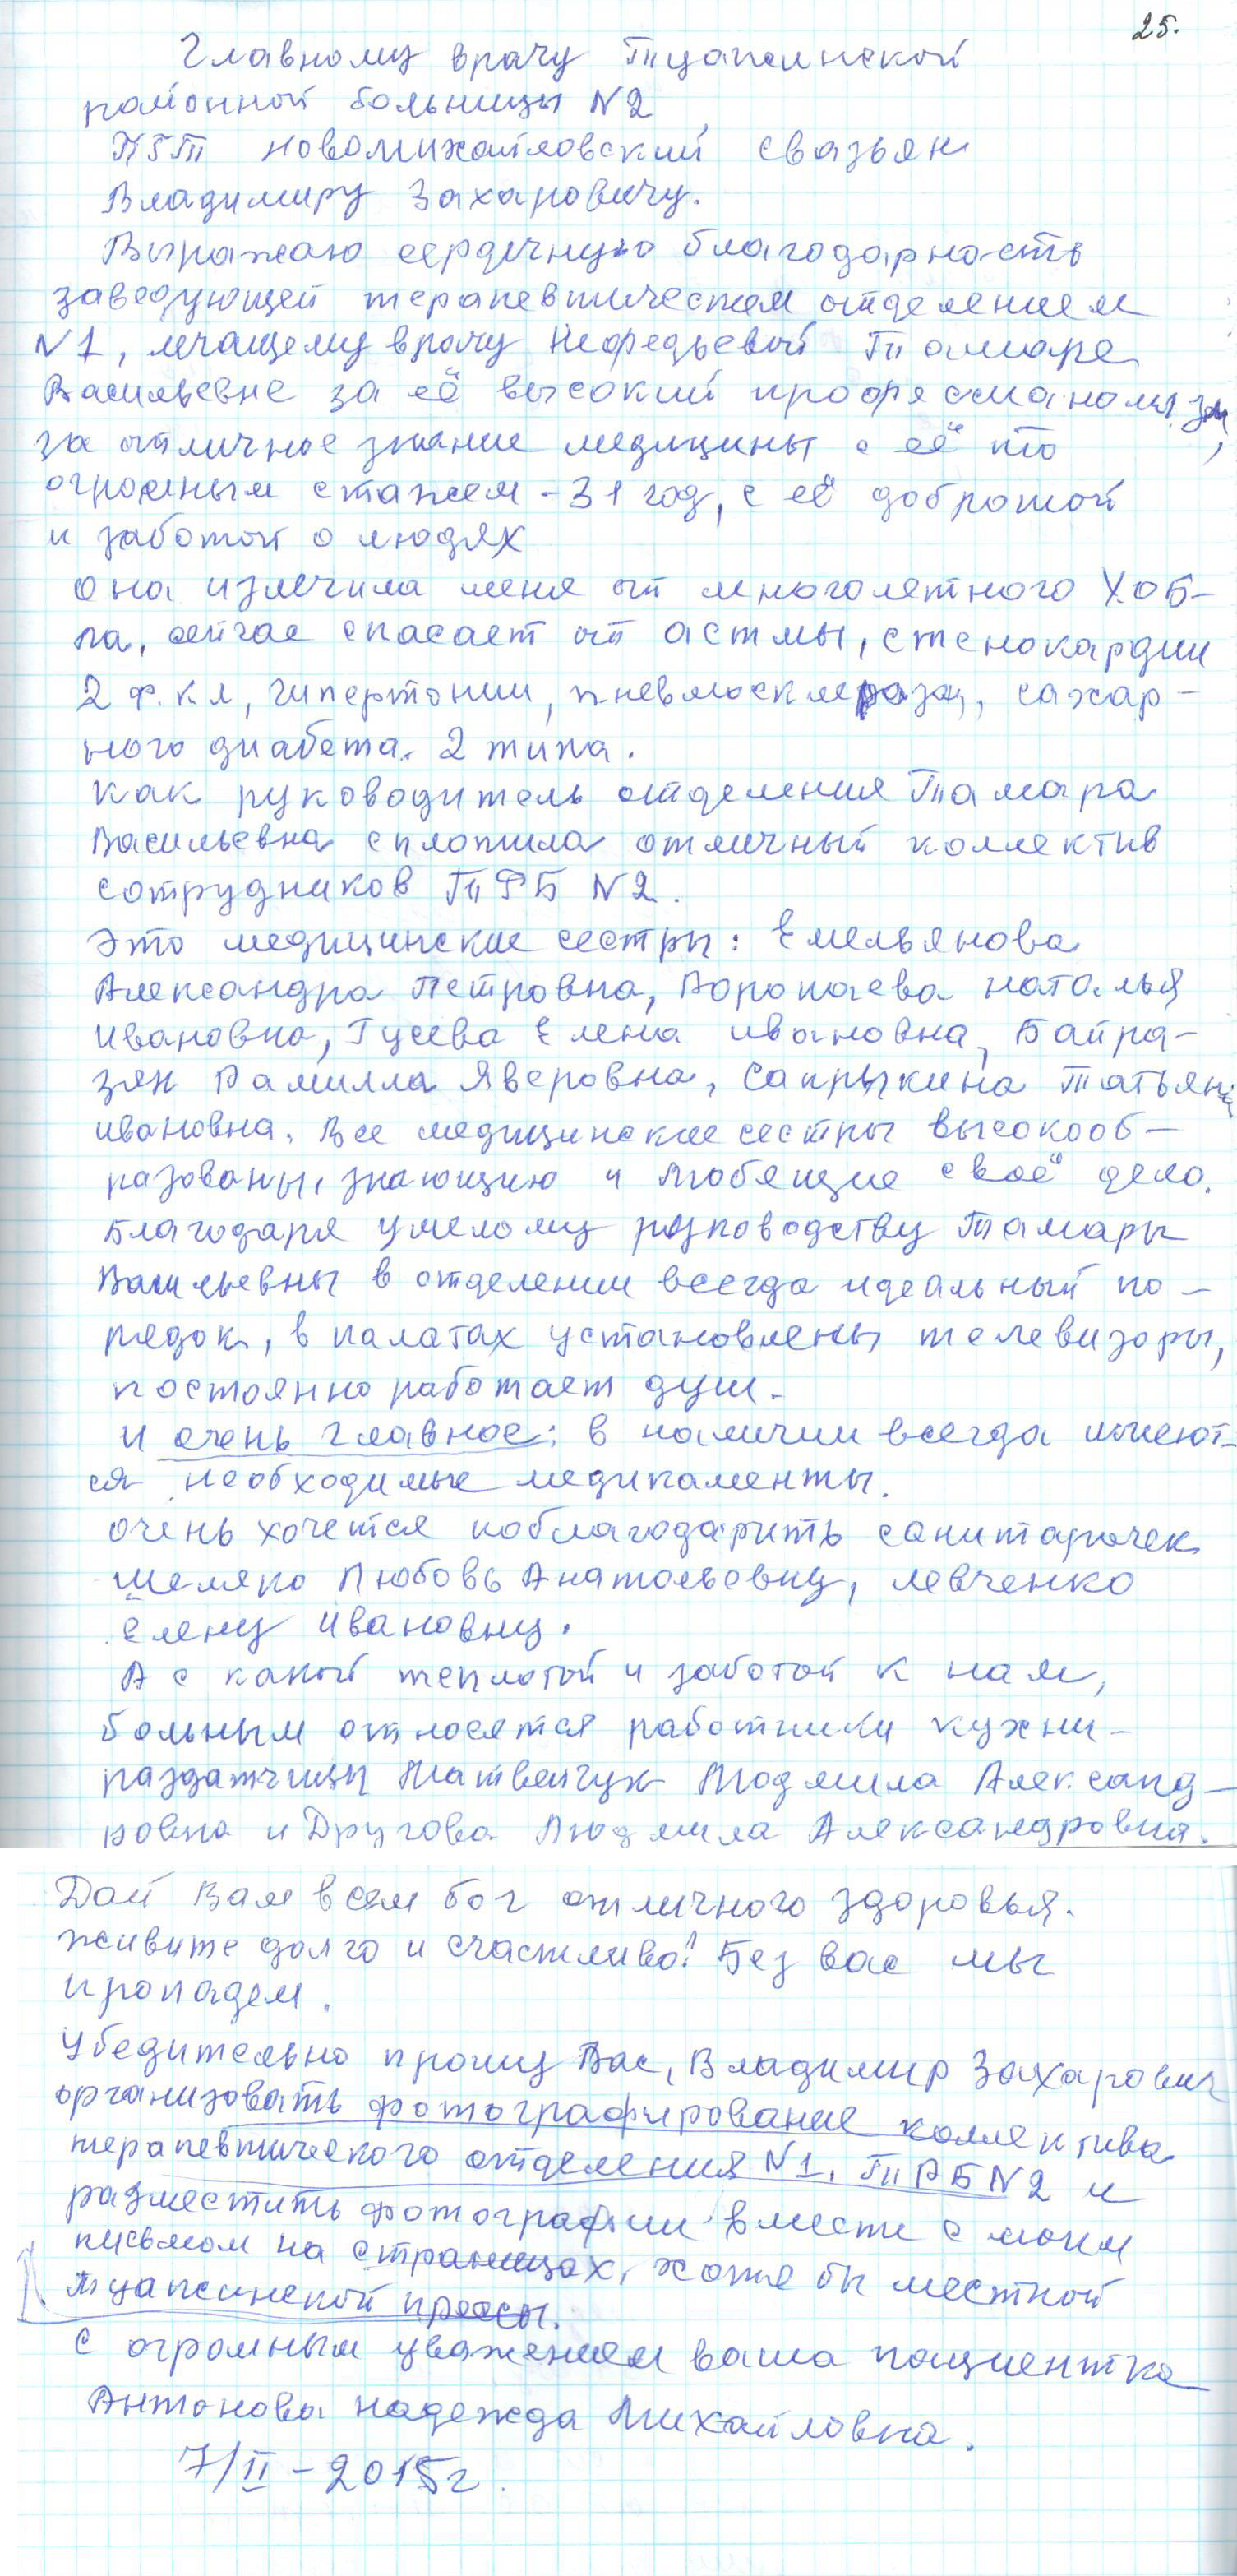 25.
Главному врачу Туапсинской
районной больницы N2
ПГТ Новомихайловский Свазьян
Владимиру Захаровичу.
Выражаю сердечную благодарность
заведующей терапевтическим отделением
N1, лечащему врачу Нефедьевой Тамаре
Васильевне за её высокий професманализм,
за отличное знание медицины с её
огромным стажем - 31 год, с её добротой
и заботой о людях
Она излечила меня от многолетного ХОБ-
ла, сейчас спасает от астмы, стенокардии
2 ф.кл, гипертонии, пневмосклероза, сахар-
ного диабета. 2 типа.
Как руководитель отделения Тамара
Васильевна сплотила отличный коллектив
сотрудников ТРБ N2.
Это медицинские сестры: Емельянова
Александра Петровна, Воропаева Наталья
Ивановна, Гусева Елена Ивановна, Байра-
зян Рамилла Яверовна, Сапрыкина Татьяна
Ивановна. Все медицинские сестры высокооб-
разованы, знающию и любящие своё дело.
Благодаря умелому руководству Тамары
Васильевны в отделении всегда идеальный по-
рядок, в палатах установлены телевизоры,
постоянно работает душ.
И очень главное: в наличии всегда имеют-
ся необходимые медикаменты.
Очень хочется поблагодарить санитарочек
Шеляко Любовь Анатольевну, Левченко
Елену Ивановну.
А с какой теплотой и заботой к нам,
больным относятся работники кухни -
раздатчицы Матвейчук Людмила Александ-
ровна и Другова Людмила Александровна.
Дай Вам всем бог отличного здоровья.
Живите долго и счастливо! Без вас мы
пропадем.
Убедительно прошу Вас, Владимир Захарович
организовать фотографирование коллектива
терапевтического отделения N1, ТРБ N2 и
разместить фотографии вместе с моим
письмом на страницах, хотя бы местной
Туапсинской прессы.
С огромным уважением ваша пациентка
Антонова Надежда Михайловна.
7/II - 2015г.